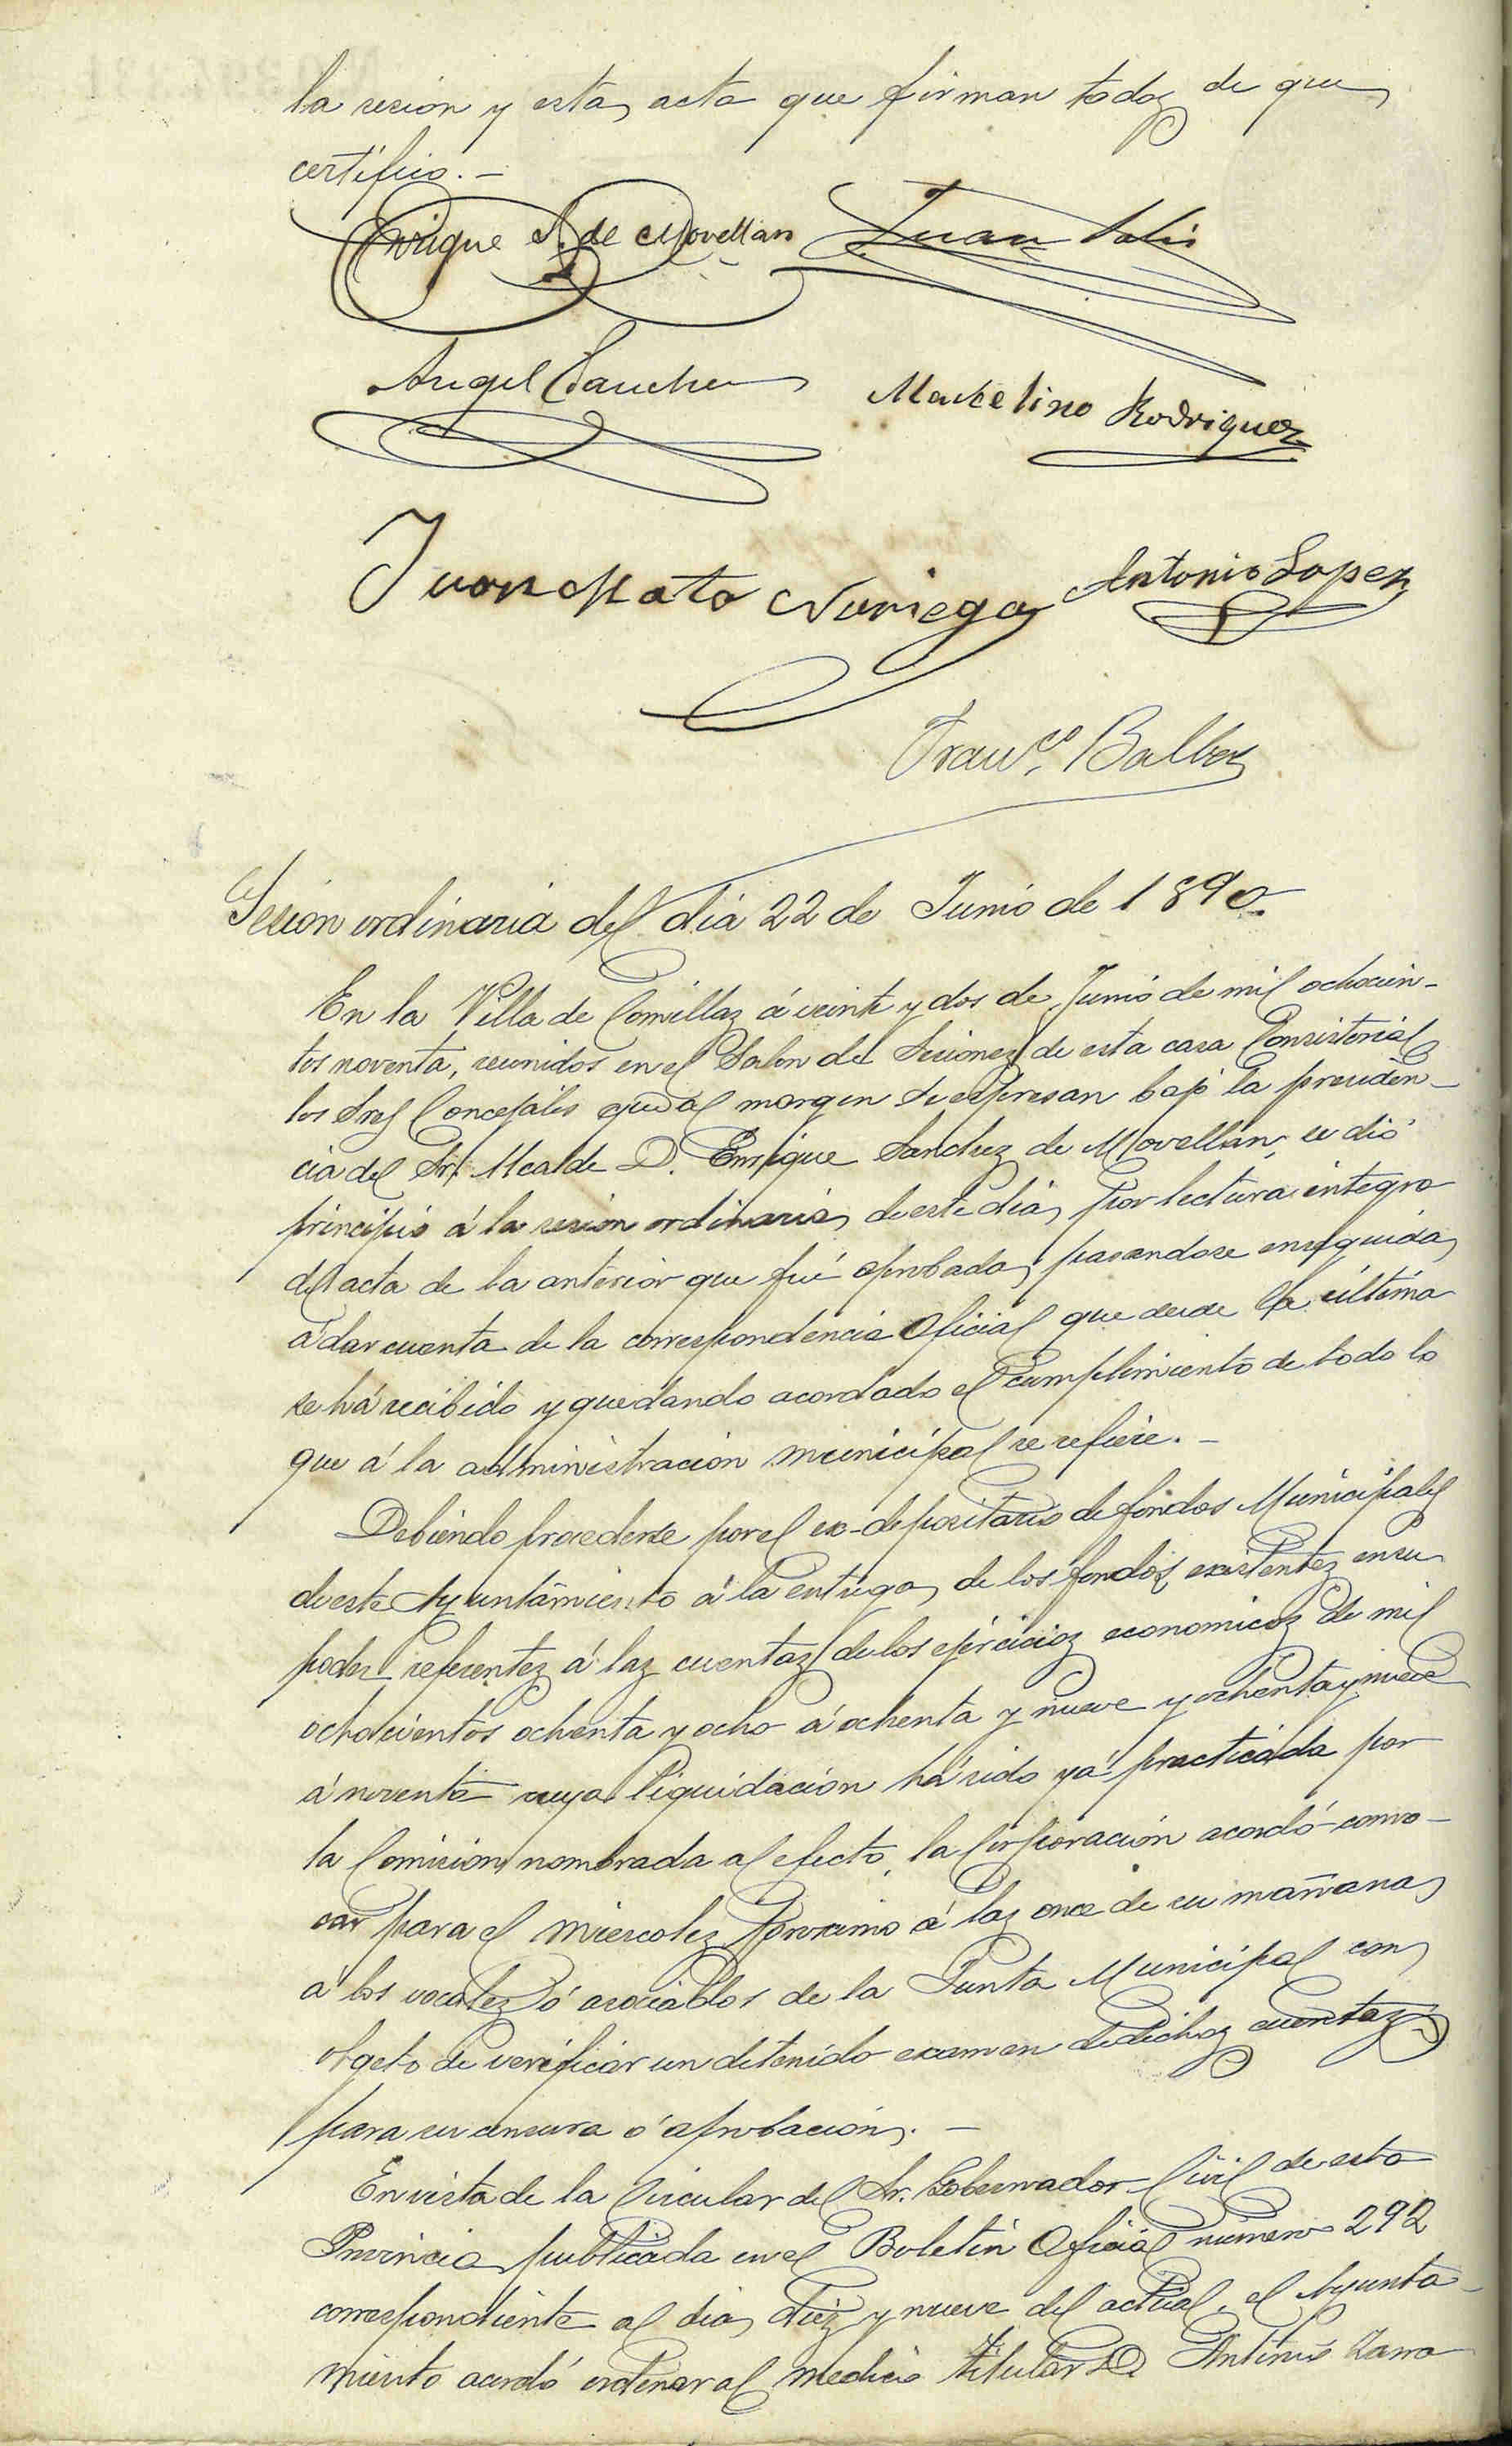 la sesion y esta acta que firman todos de que
certifico.-
Enrique S. de Movellan Juan Solis
Angel Sanchez Marcelino Rodriguez
Juan Mata Noriega Antonio Lopez
Fran.co Balbas
Sesion ordinaria del dia 22 de Junio de 1890.
En la Villa de Comillas á veinte y dos de Junio de mil ochocien-
tos noventa, reunidos en el Salon de Sesiones de esta casa Consistorial
los Sres Concejales que al margen se espresan bajo la presiden-
cia del Sr. Alcalde D. Enrique Sanchez de Movellan, se dió
principio á la sesion ordinaria de este dia, por lectura integra
del acta de la anterior que fué aprobada, pasandose enseguida
á dar cuenta de la correspondencia Oficial que desde la última
se há recibido y quedando acordado el cumplimiento de todo lo
que á la administracion municipal se refiere.-
Debiendo procederse por el ex-depositario de fondos Municipales
de este Ayuntamiento á la entrega de los fondos existentes en su
poder referentes á las cuentas de los ejercicios economicos de mil
ochocientos ochenta y ocho á ochenta y nueve y ochenta y nueve
á noventa cuya liquidacion há sido yá practicada por
la Comision nombrada al efecto, la Corporacion acordó convo-
car para el miercoles proximo á las once de su mañana
á los vocales ó asociados de la Junta Municipal con
objeto de verificar un detenido examen de dichas cuentas
para su censura ó aprobacion.-
En vista de la Circular del Sr. Gobernador Civil de esta
Provincia publicada en el Boletin Oficial número 292
correspondiente al dia diez y nueve del actual, el Ayunta-
miento acordó ordenar al medico titular D.